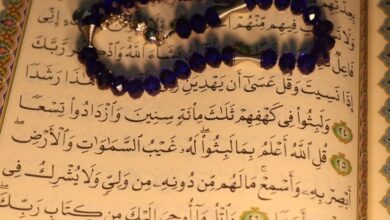 فِيهِم مِّنْهُمْ إِنِّي
فَاعِلٌ ٱللَّهُ وَٱذْكُر رَّبَّكَ
إِذَا نَسِيتَ وَقُلْ عَسَىٰٓ أَن يَهْدِيَنِ هَٰذَا رَشَدًا ٢٤
وَلَبِثُوا۟ فِى كَهْفِهِمْ ثَلَٰثَ مِا۟ئَةٍ سِنِينَ وَٱزْدَادُوا۟ تِسْعًا ٢٥
قُلِ ٱللَّهُ أَعْلَمُ بِمَا لَبِثُوا۟ لَهُۥ غَيْبُ ٱلسَّمَٰوَٰتِ وَٱلْأَرْضِ
أَبْصِرْ بِهِۦ وَأَسْمِعْ مَا لَهُم مِّن دُونِهِۦ مِن وَلِىٍّ وَلَا يُشْرِكُ فِى
وَٱتْلُ مَآ أُوحِىَ إِلَيْكَ مِن كِتَابِ رَبِّكَ